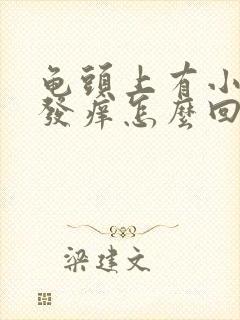 龟頭上有小
發痒怎麼回
梁建文